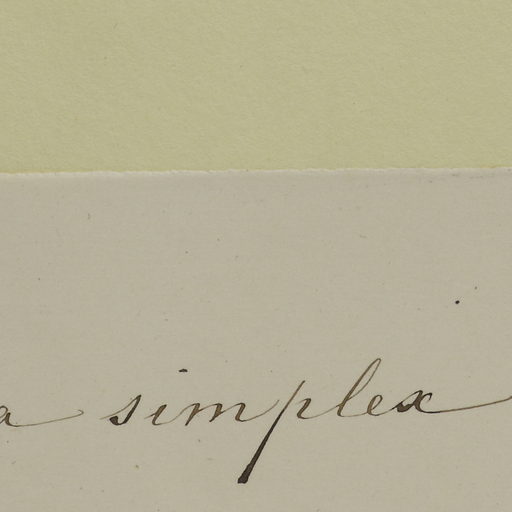 a simplex